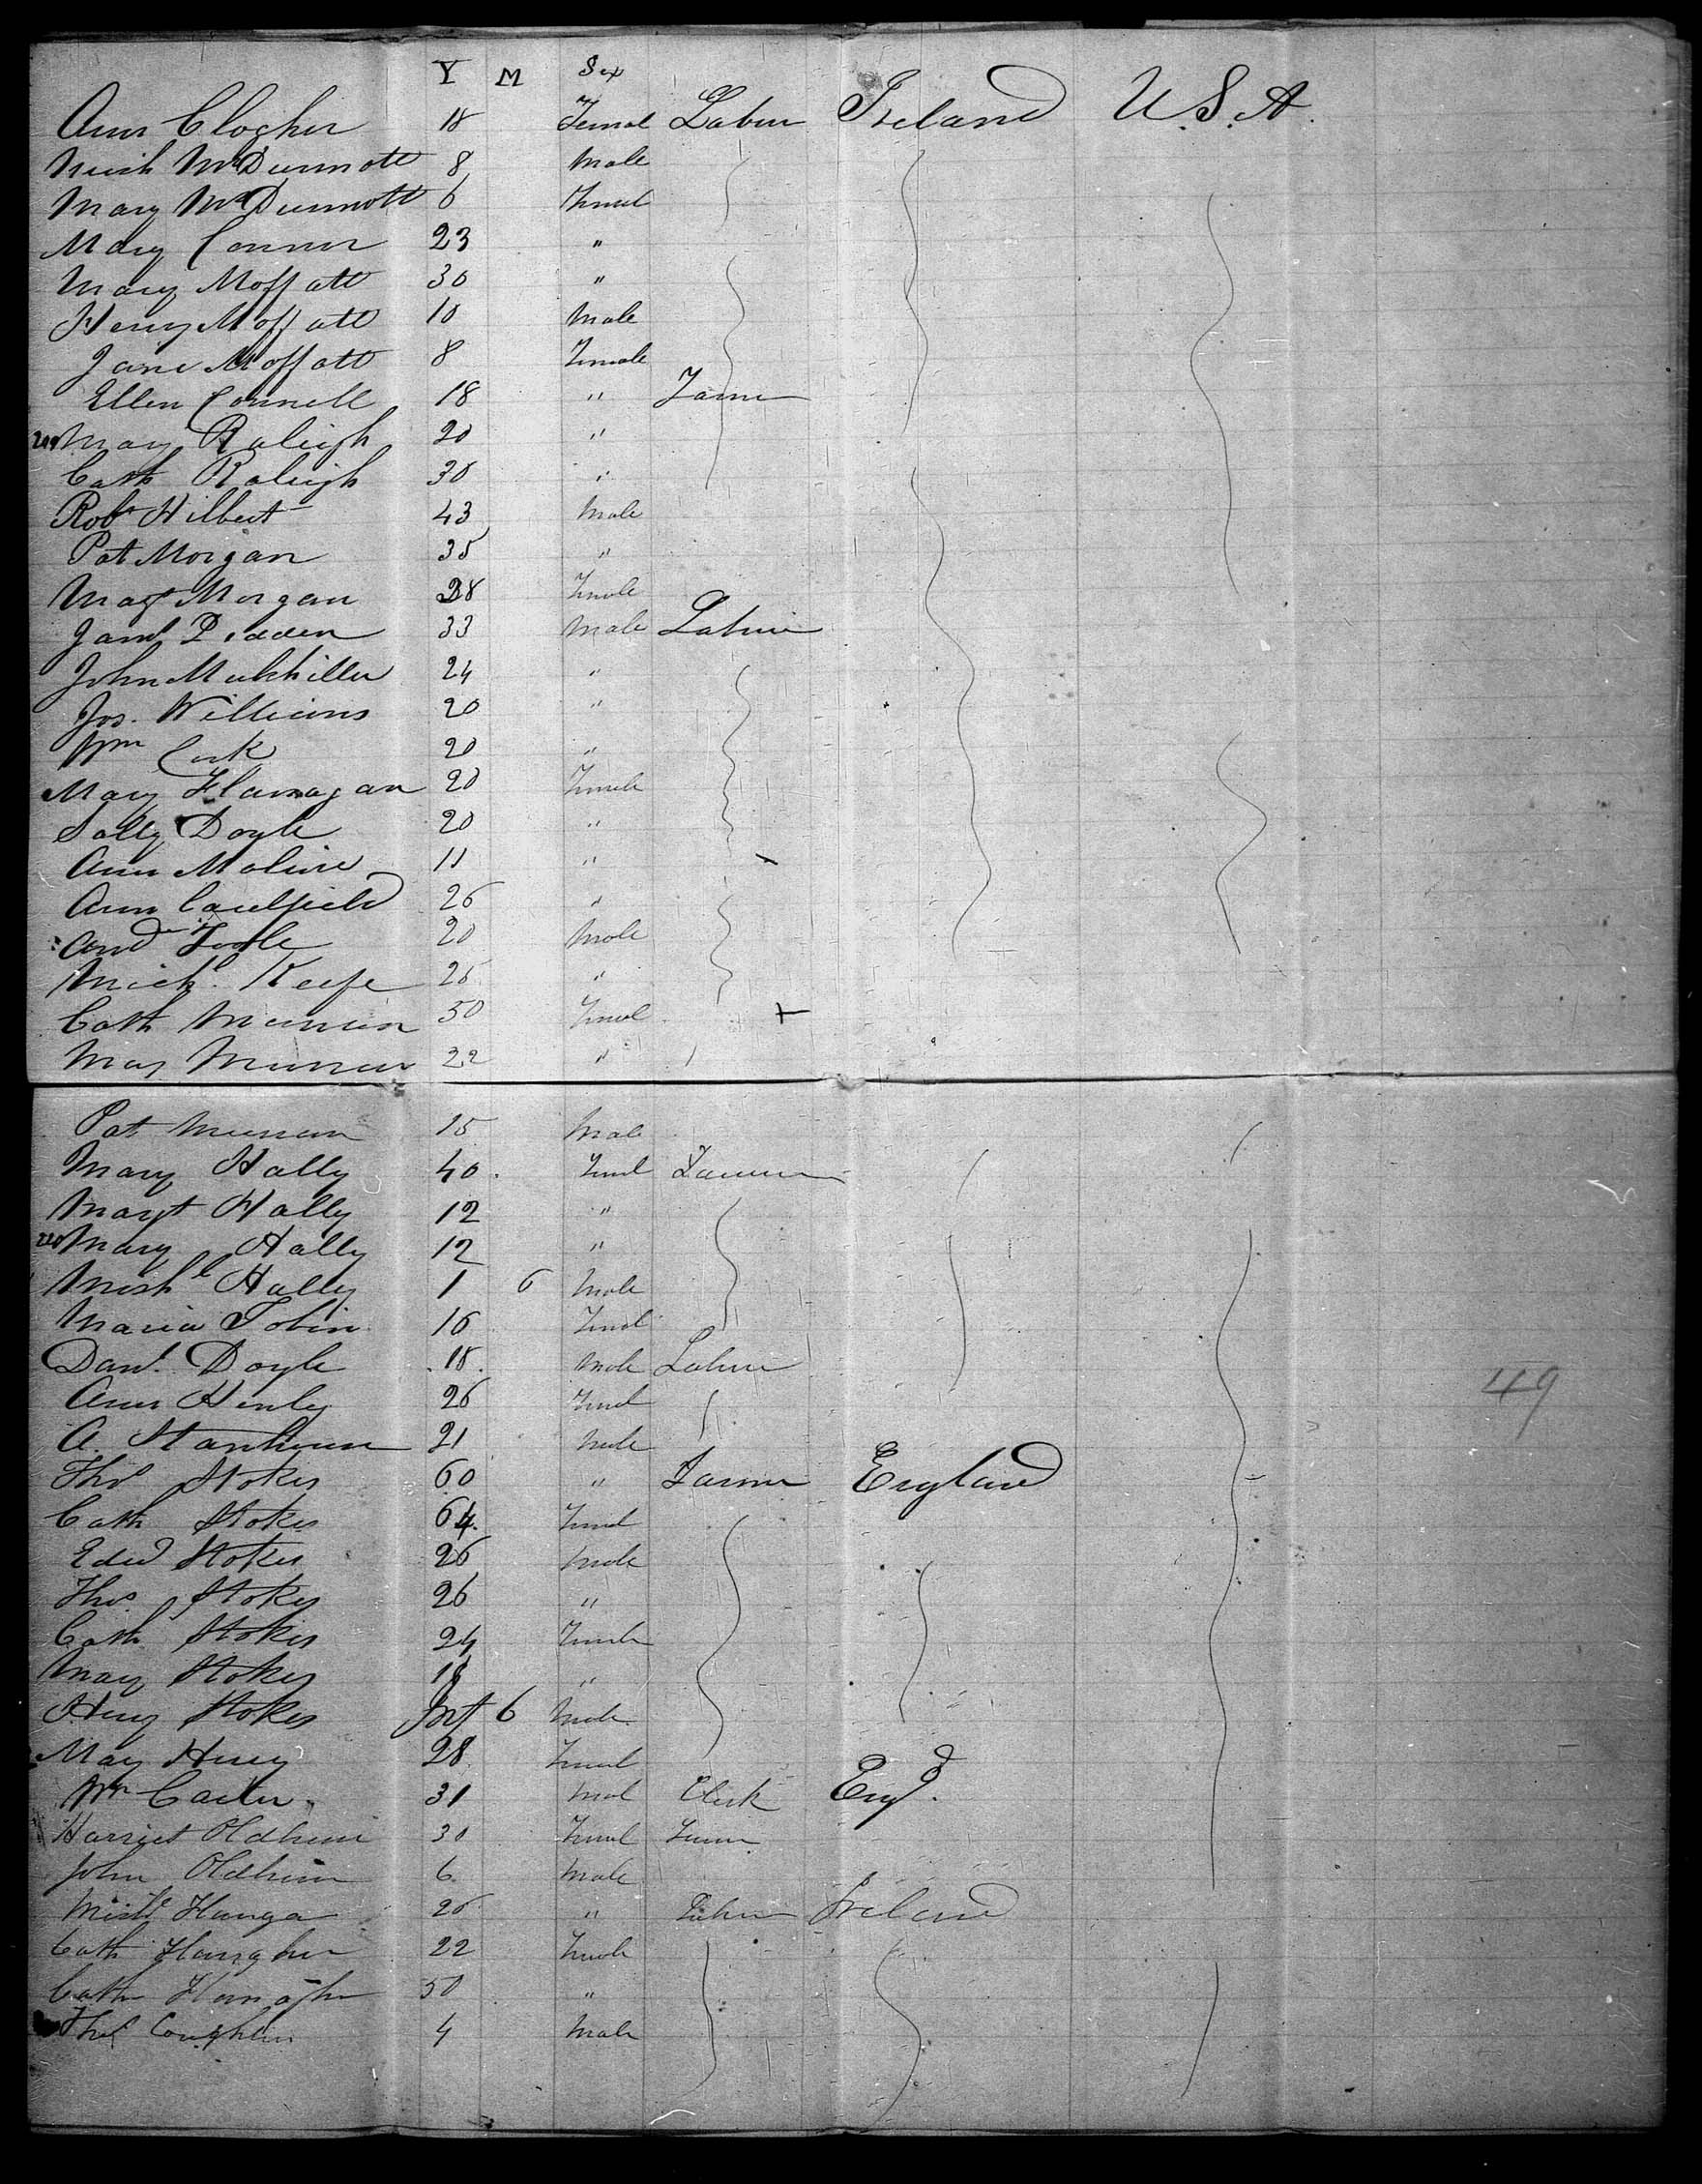 Y M Sex
Ann Clogher 18 Femal Labur Ireland U.S.A.
Mich McDermott 8 Male
Mary McDermott 6 Femal
Mary Connor 23 "
Mary Moffatt 30 "
Henry Moffatt 10 Male
Jane Moffatt 8 Female
Ellen Connell 18 " Farmer
Mary Raleigh 20 "
Cath Raleigh 30 "
Robt Hilbert 43 Male
Pat Morgan 35 "
Magt Morgan 38 Female
Jams 33 Male Labur
John 24 "
Jos. Williams 20 "
Wm Cork 20 "
Mary Flanagan 20 Female
Sally Doyle 20 "
Ann 11 "
Ann Caulfield 26 "
Andw Toole 20 Male
Michl. Keefe 25 "
Cath Murran 50 Femal
May Murran 22 "
Pat Murran 15 Male
Mary Hally 40 Feml Farmer
Margt Hally 12 "
Mary Hally 12 "
Michl Hally 1 6 Male
Maria Tobin 16 Femal
Danl. Doyle 18 Male Labur
Ann Henly 26 Feml
A. 21 Male
49
Thos Stokes 60 " Farmer England
Cath Stokes 64 Feml
Edwd Stokes 26 Male
Thos Stokes 26 "
Cath Stokes 24 Female
Mary Stokes 18 "
Heny Stokes Inf 6 Male
May Henry 28 Femal
Wm Carter 31 Mal Clerk Engd.
Harriet Oldham 30 Femal
John Oldham 6 Male
Michl 26 " Labur Ireland
Cath 22 Female
Cath 50 "
Thos Coughlin 4 Male